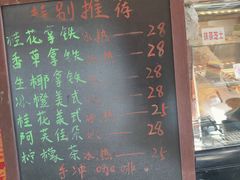 特别推荐
桂花拿铁 冰热——28
香草拿铁 冰热——28
生椰拿铁 冰热——28
冰橙美式——28
桂花美式 冰热——25
阿芙佳朵——28
柠檬茶 冰热——25
手冲咖啡